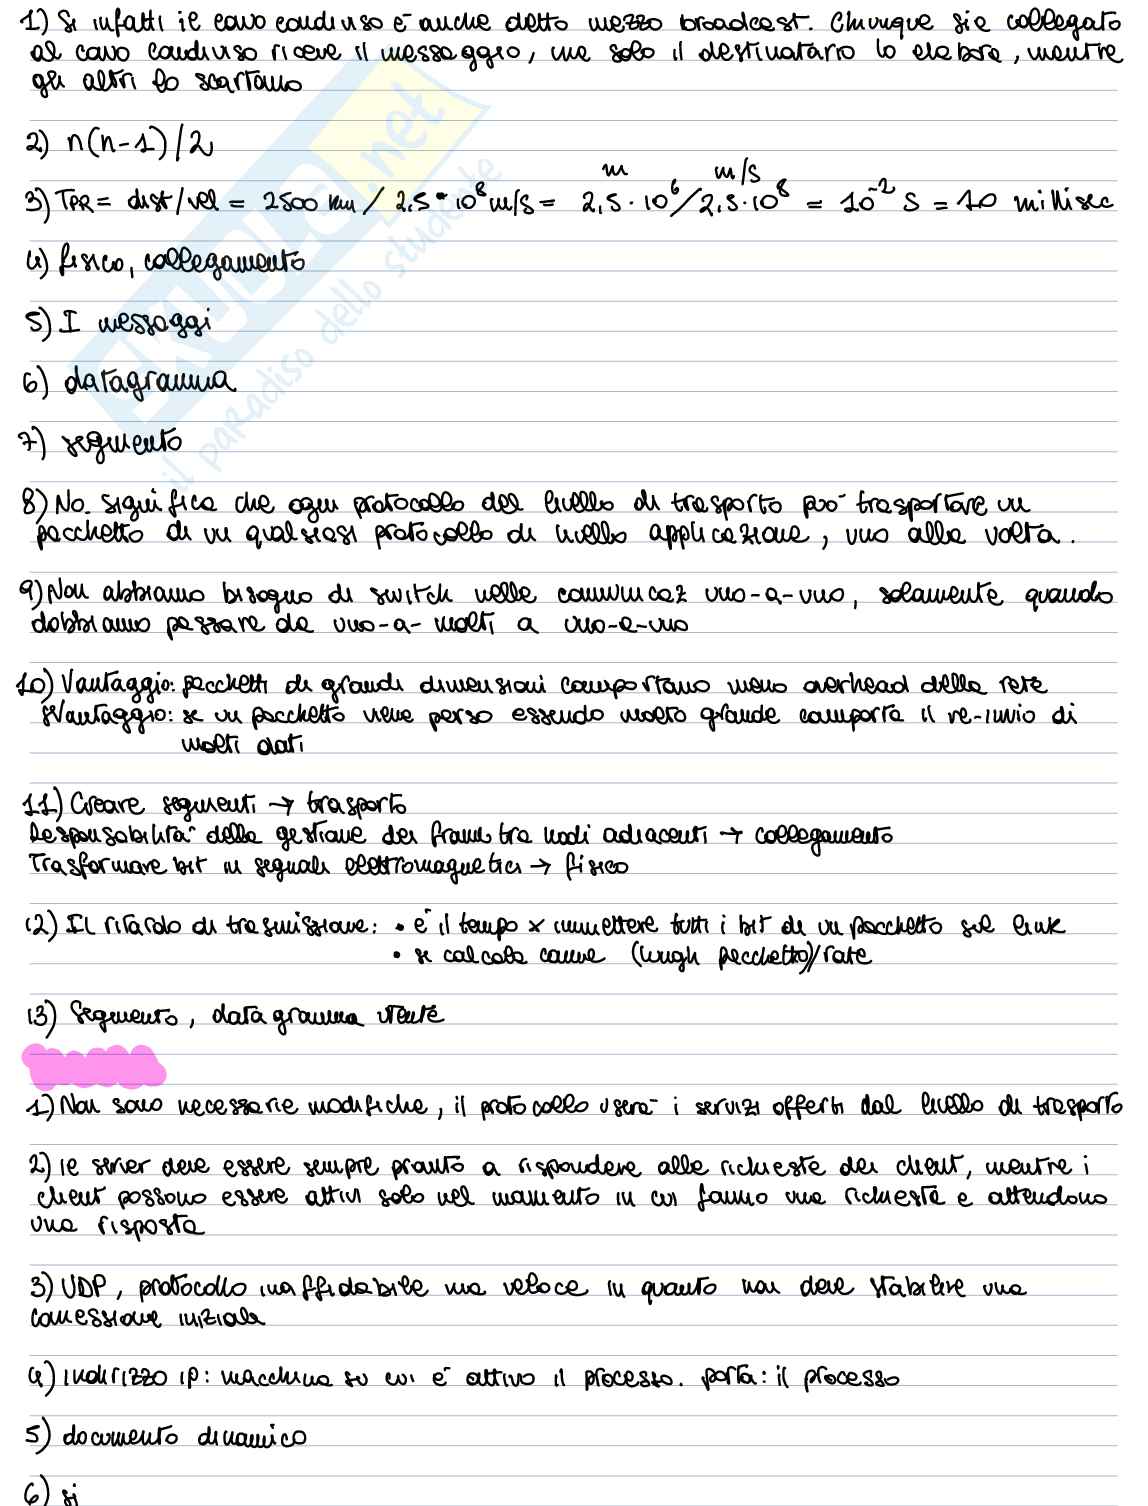 1) Si infatti il cavo condiviso è anche detto mezzo broadcast. Chiunque sia collegato
al cavo condiviso riceve il messaggio, ma solo il destinatario lo elabora, mentre
gli altri lo scartano
2) n(n-1)/2
m m/s
3) TPR = dist/vel = 2500 km / 2,5 · 10⁸ m/s = 2,5 · 10⁶/2,5·10⁸ = 10⁻² s = 10 millisec
4) fisico, collegamento
5) I messaggi
6) datagramma
7) segmento
8) No. significa che ogni protocollo del livello di trasporto può trasportare un
pacchetto di un qualsiasi protocollo di livello applicazione, uno alla volta.
9) Non abbiamo bisogno di switch nelle comunicaz uno-a-uno, solamente quando
dobbiamo passare da uno-a-molti a uno-a-uno
10) Vantaggio: pacchetti di grandi dimensioni comportano meno overhead della rete
Svantaggio: se un pacchetto viene perso essendo molto grande comporta il re-invio di
molti dati
11) Creare segmenti → trasporto
Responsabilità della gestione dei frame tra nodi adiacenti → collegamento
Trasformare bit in segnali elettromagnetici → fisico
12) Il ritardo di trasmissione: • è il tempo x immettere tutti i bit di un pacchetto sul link
• si calcola come (lungh pacchetto)/rate
13) Segmento, datagramma utente
1) Non sono necessarie modifiche, il protocollo userà i servizi offerti dal livello di trasporto
2) le server deve essere sempre pronto a rispondere alle richieste dei client, mentre i
client possono essere attivi solo nel momento in cui fanno una richiesta e attendono
una risposta
3) UDP, protocollo inaffidabile ma veloce in quanto non deve stabilire una
connessione iniziale
4) indirizzo IP: macchina su cui è attivo il processo. porta: il processo
5) documento dinamico
6) si
SKUOLA.net
il paradiso dello studente